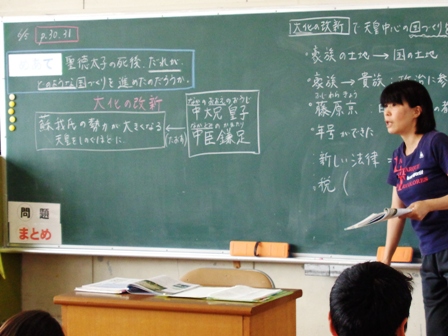 6/5 p.30.31
めあて
聖徳太子の死後、だれが、
どのような国づくりを進めたのだろうか。
大化の改新
蘇我氏の勢力が大きくなる
天皇をしのぐほどに
なかのおおえのおうじ
中大兄皇子
なかとみのかまたり
中臣鎌足
大化の改新 で天皇中心の国づくり
・家族の土地→国の土地
・家族→貴族
ふじわらきょう
・藤原京
・年号ができた
新しい法律=
・税(
問題
まとめ